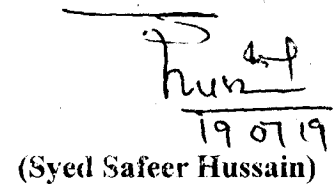 19 07 19
(Syed Safeer Hussain)